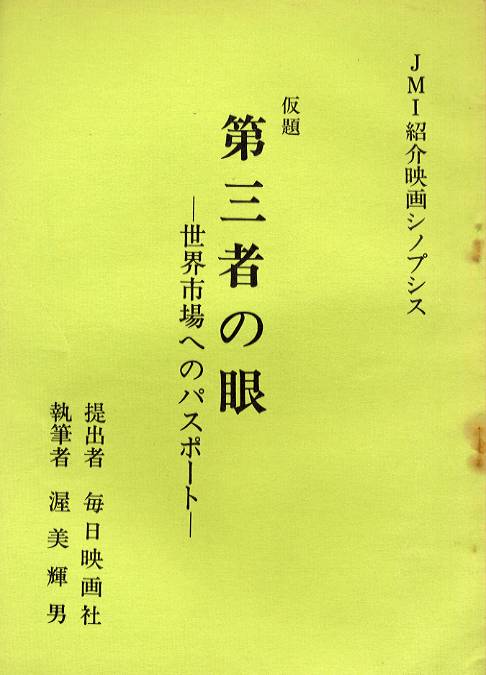 JMI紹介映画シノプシス
仮題
第三者の眼
―世界市場へのパスポート―
提出者 毎日映画社
執筆者 渥美輝男